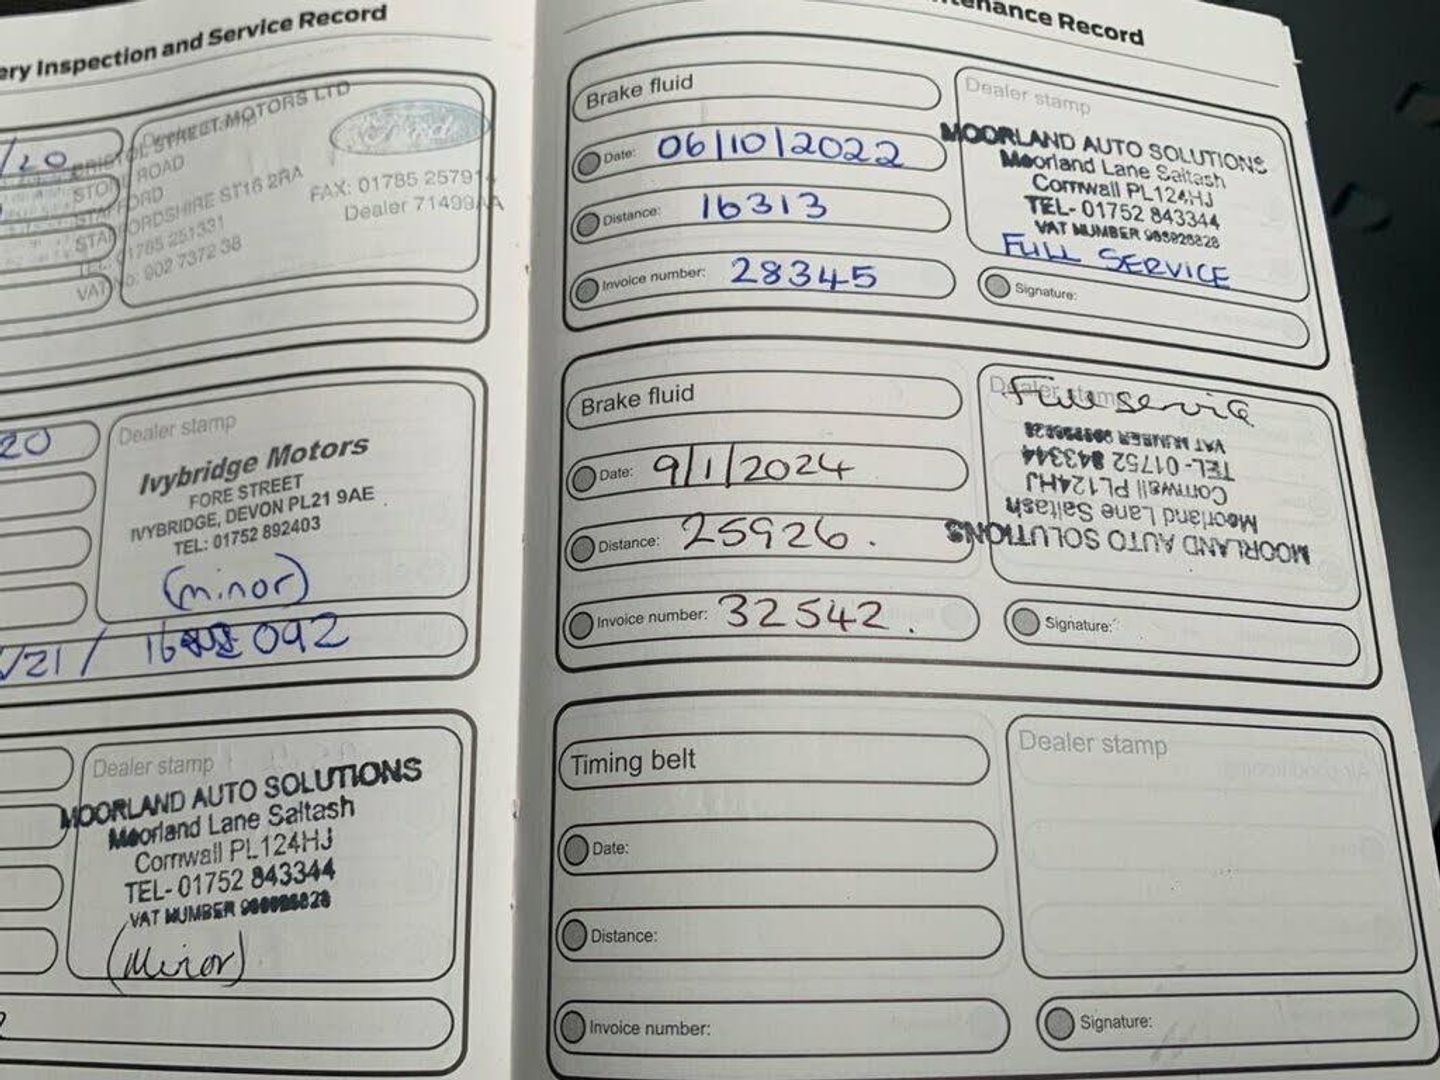 ery Inspection and Service Record
/20
Dealer stamp
BRISTOL STREET MOTORS LTD
STONE ROAD
STAFFORD
STAFFORDSHIRE ST16 2RA
TEL: 01785 251331
VAT No: 902 7372 38
Ford
FAX: 01785 25791
Dealer 71499AA
20
Dealer stamp
Ivybridge Motors
FORE STREET
IVYBRIDGE, DEVON PL21 9AE
TEL: 01752 892403
(minor)
/21 / 16 092
Dealer stamp
MOORLAND AUTO SOLUTIONS
Moorland Lane Saltash
Cornwall PL124HJ
TEL- 01752 843344
VAT NUMBER
(Minor)
tenance Record
Brake fluid
Date: 06/10/2022
Distance: 16313
Invoice number: 28345
Dealer stamp
MOORLAND AUTO SOLUTIONS
Moorland Lane Saltash
Cornwall PL124HJ
TEL- 01752 843344
VAT NUMBER
FULL SERVICE
Signature:
Brake fluid
Date: 9/1/2024
Distance: 25926.
Invoice number: 32542.
Dealer stamp
Full service
MOORLAND AUTO SOLUTIONS
Moorland Lane Saltash
Cornwall PL124HJ
TEL- 01752 843344
VAT NUMBER
Signature:
Timing belt
Date:
Distance:
Invoice number:
Dealer stamp
Signature: